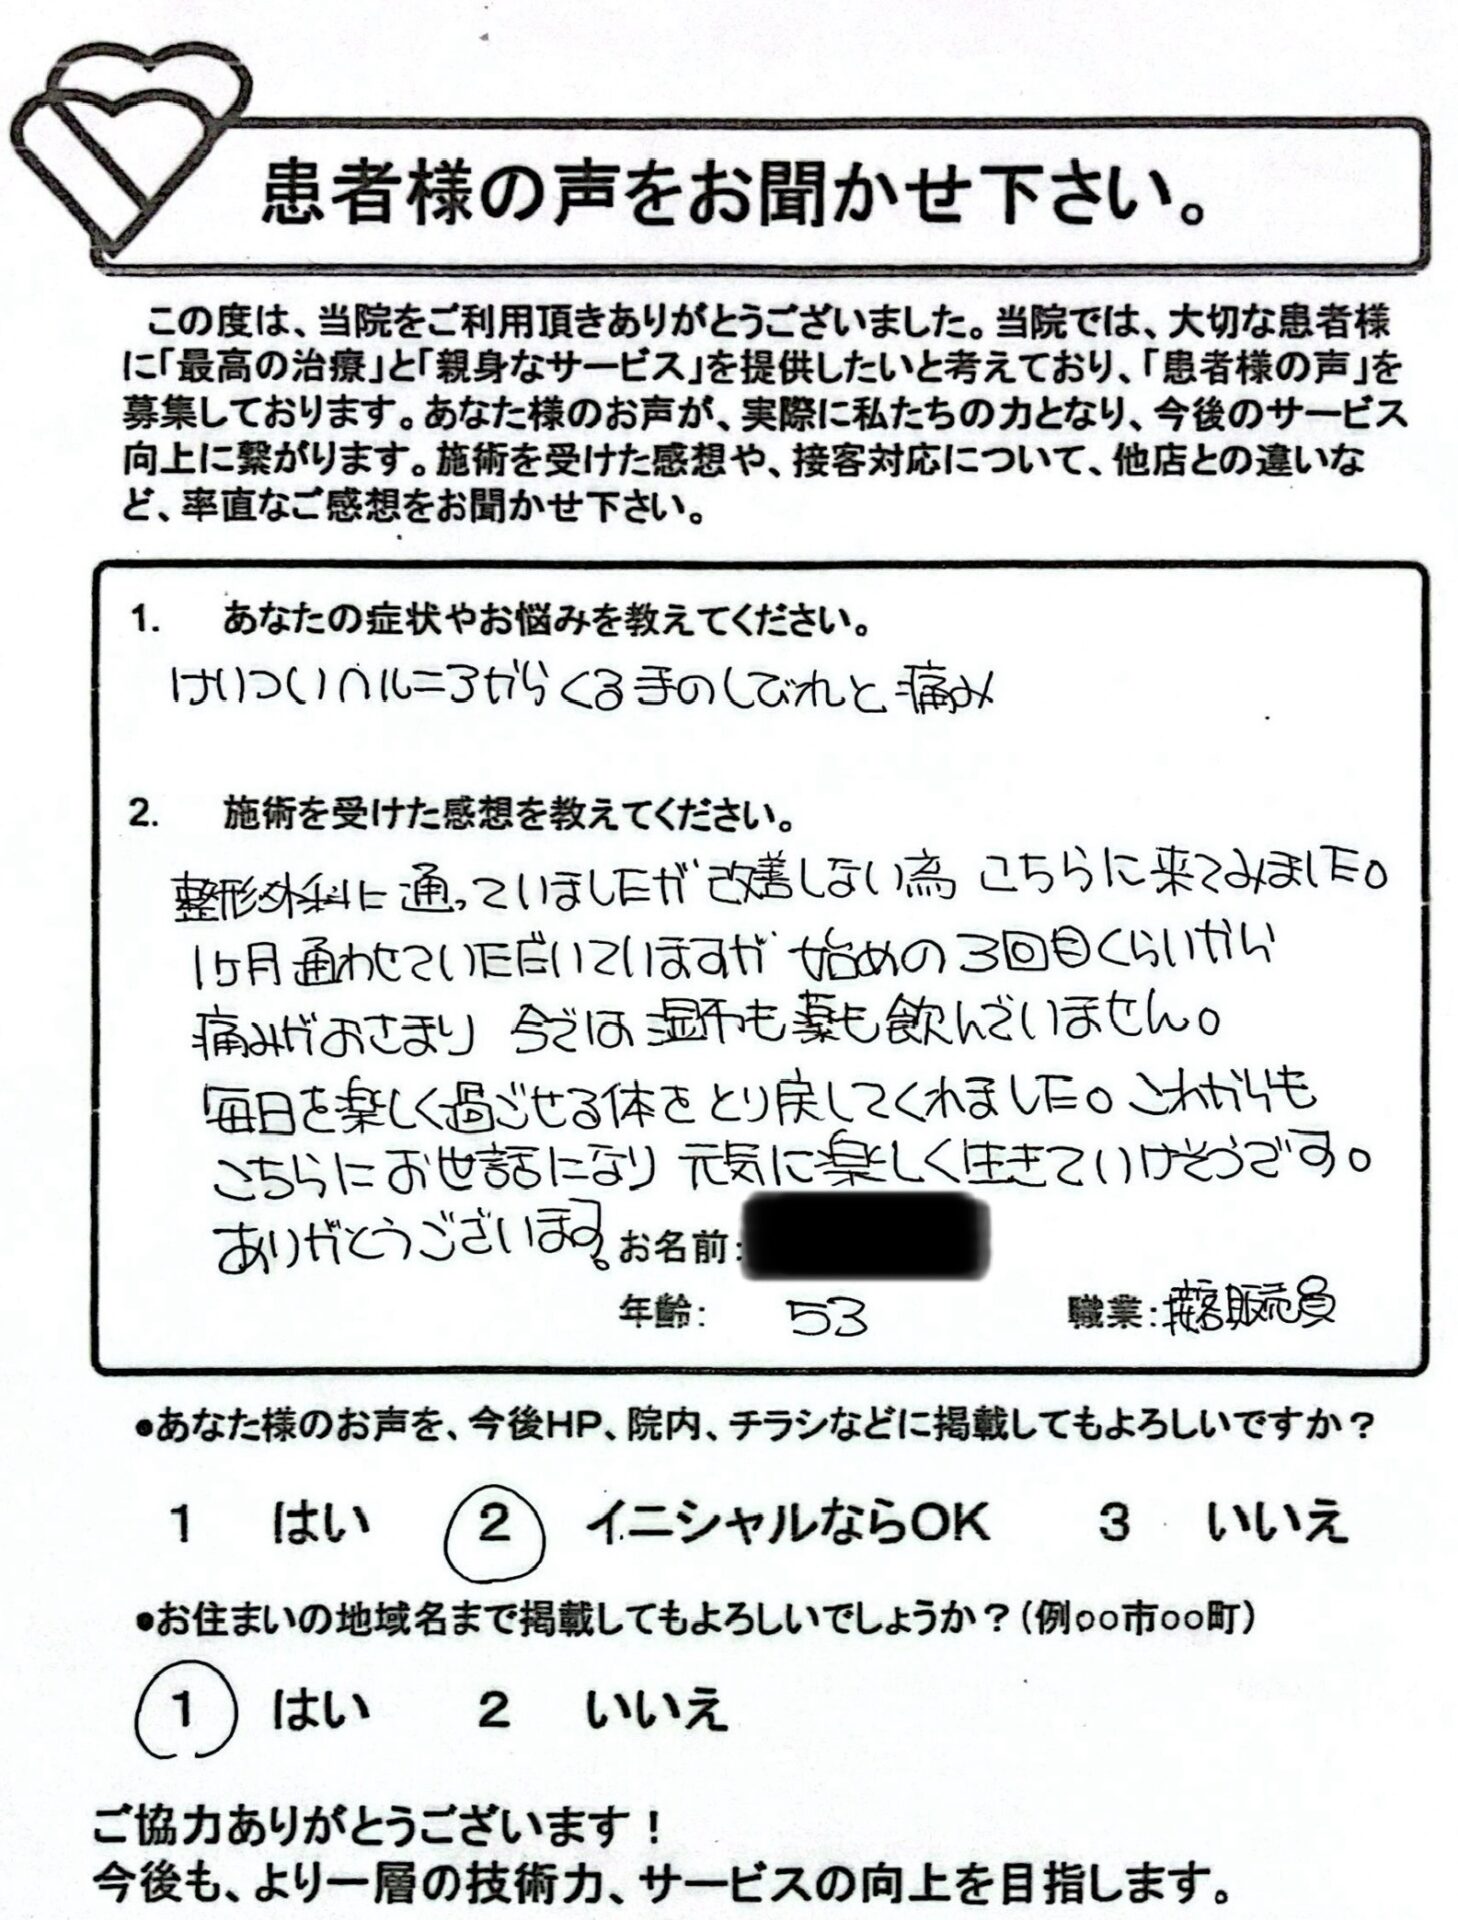 患者様の声をお聞かせ下さい。
この度は、当院をご利用頂きありがとうございました。当院では、大切な患者様
に「最高の治療」と「親身なサービス」を提供したいと考えており、「患者様の声」を
募集しております。あなた様のお声が、実際に私たちの力となり、今後のサービス
向上に繋がります。施術を受けた感想や、接客対応について、他店との違いな
ど、率直なご感想をお聞かせ下さい。
1. あなたの症状やお悩みを教えてください。
けいついヘルニアからくる手のしびれと痛み
2. 施術を受けた感想を教えてください。
整形外科に通っていましたが改善しない為 こちらに来てみました。
1ヶ月通わせていただいていますが 始めの3回目くらいから
痛みがおさまり 今では湿布も薬も飲んでいません。
毎日を楽しく過ごせる体をとり戻してくれました。これからも
こちらにお世話になり 元気に楽しく生きていけそうです。
ありがとうございます。 お名前:
年齢: 53 職業:接客販売員
●あなた様のお声を、今後HP、院内、チラシなどに掲載してもよろしいですか？
1 はい 2 イニシャルならOK 3 いいえ
●お住まいの地域名まで掲載してもよろしいでしょうか？(例○○市○○町)
1 はい 2 いいえ
ご協力ありがとうございます！
今後も、より一層の技術力、サービスの向上を目指します。